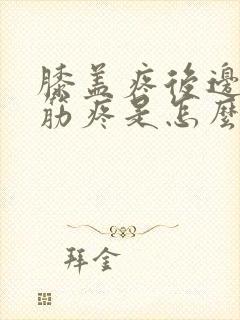 膝盖疼後邊
筋疼是怎麼
拜金